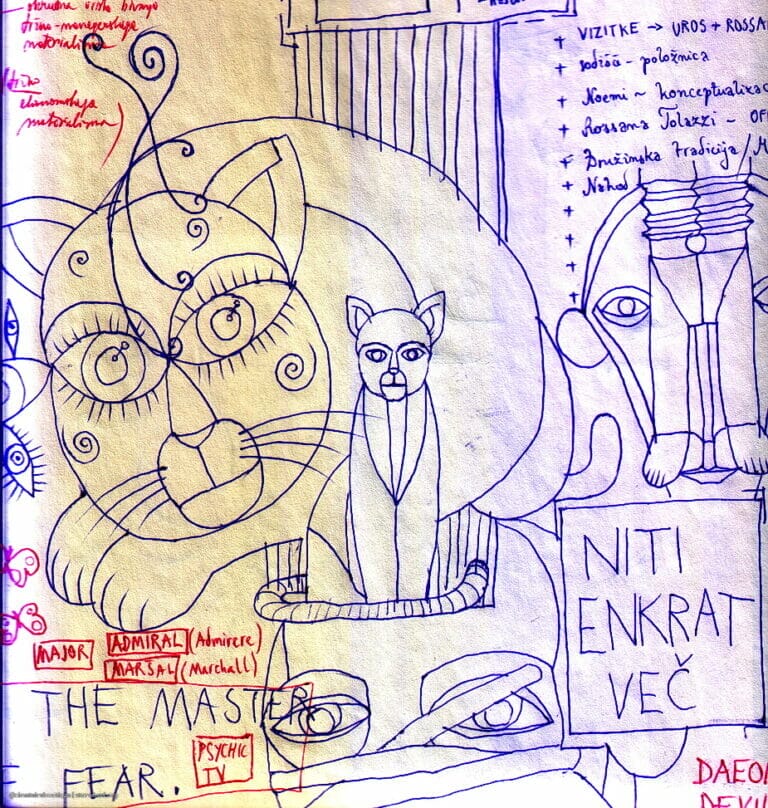 okrutna vrsta bivanja
tržno-manegerskega
materializma
tržno
ekonomskega
materializma)
+ VIZITKE → UROŠ + ROSSA
+ sodišče - položnica
+ Noemi ~ konceptualizac
+ Rossana Tolazzi ~ OF
+ Družinska tradicija / M
+ Nahod
+
+
+
+
NITI
ENKRAT
VEČ
MAJOR
ADMIRAL (Admirere)
MARŠAL (Marchall)
THE MASTER
PSYCHIC
TV
FEAR.
DAEO